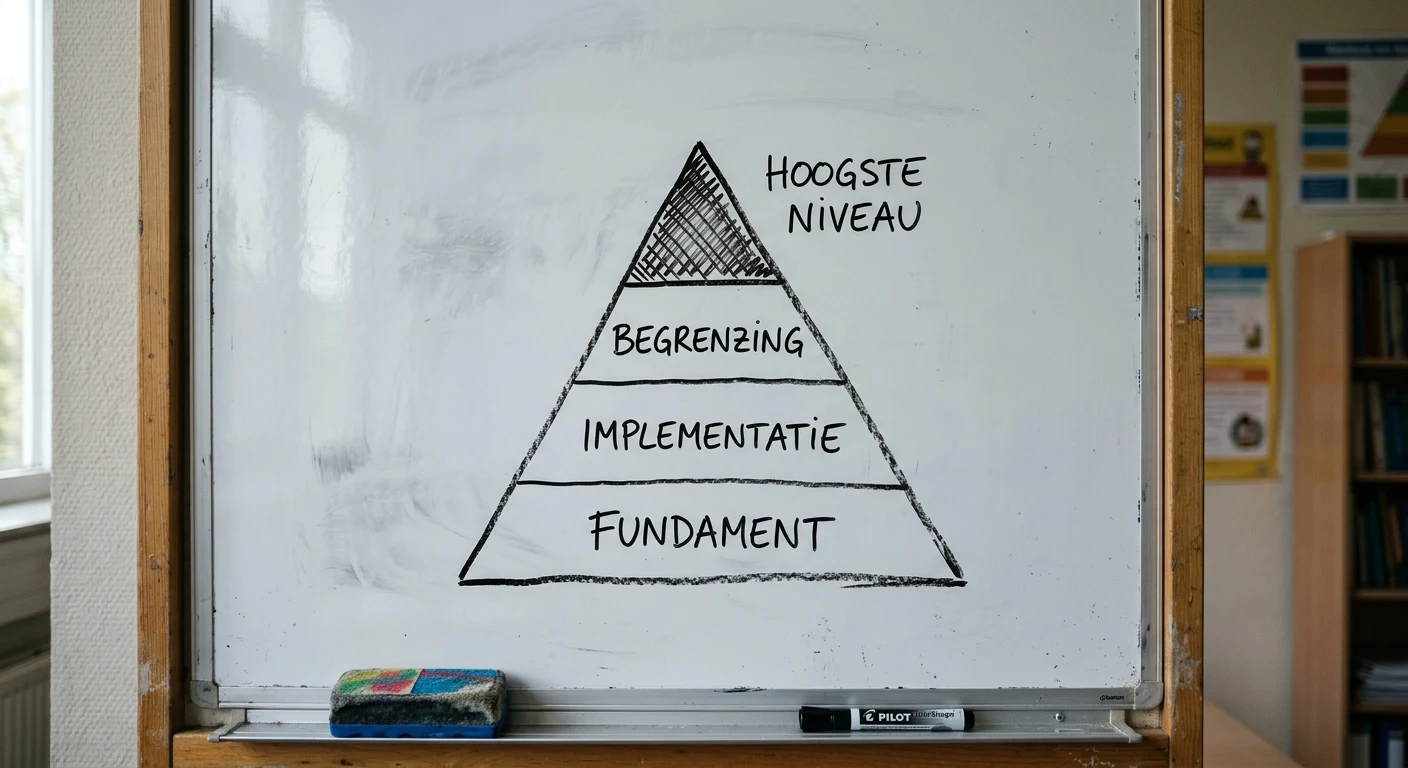 HOOGSTE
NIVEAU
BEGRENZING
IMPLEMENTATIE
FUNDAMENT
PILOT